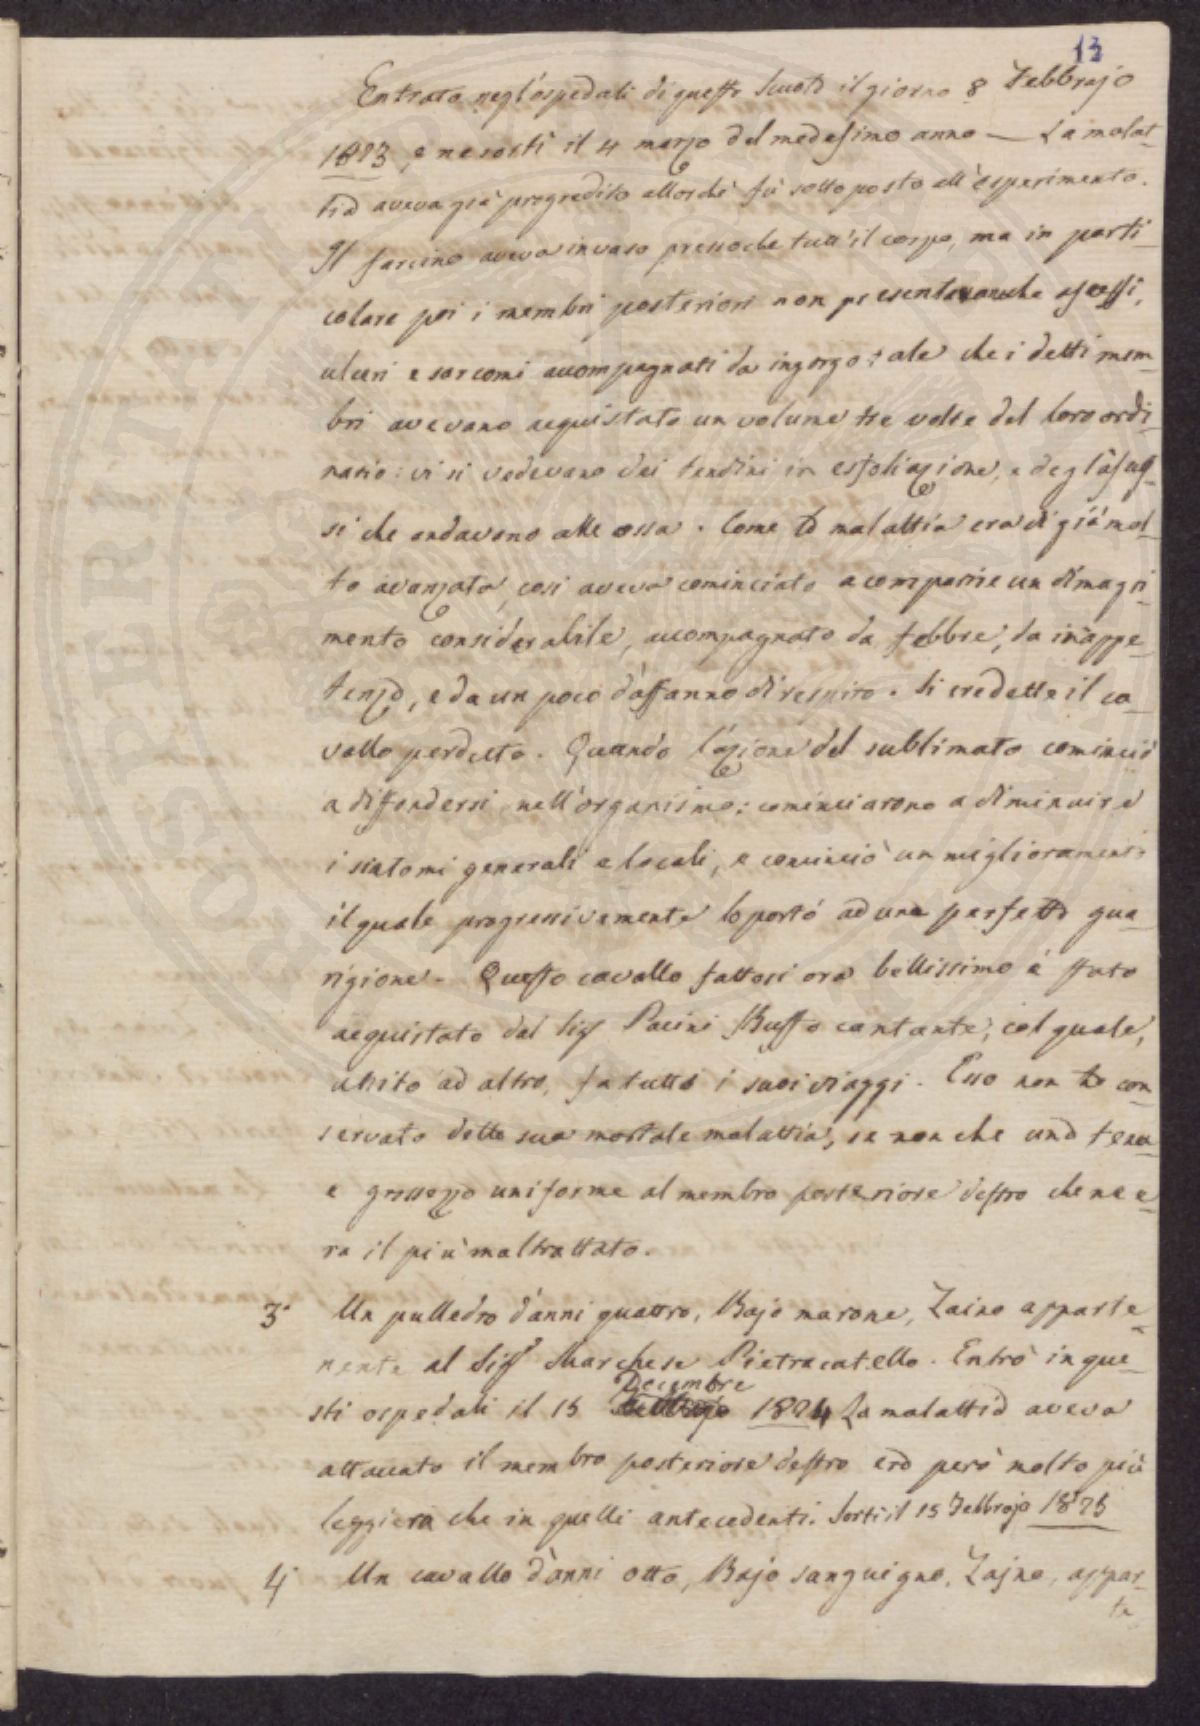 13
Entrato negl'ospedali di questa Scuola il giorno 8 Febbrajo
1823, e ne sortì il 4 marzo del medesimo anno — La malat-
tia aveva già progredito allorchè fù sottoposto all'esperimento.
Il farcino aveva invaso pressochè tutt'il corpo, ma in parti-
colare poi i membri posteriori non presentavanche ascessi,
ulceri e sarcomi accompagnati da ingorgo tale che i detti mem-
bri avevano acquistato un volume tre volte del loro ordi-
nario: vi si vedevano dei tendini in esfoliazione, e degl'
si che andavano alle ossa. Come la malattia era di già mol-
to avanzata, così aveva cominciato a comparire un dimagri-
mento considerabile, accompagnato da febbre, da inappe-
tenza, e da un poco d'affanno di respiro. Si credette il ca-
vallo perduto. Quando l'azione del sublimato cominciò
a diffondersi nell'organismo: cominciarono a diminuire
i sintomi generali e locali, e cominciò un miglioramento
il quale progressivamente lo portò ad una perfetta gua-
rigione. Questo cavallo fattosi ora bellissimo è stato
acquistato dal Sigr Pacini Buffo cantante, col quale,
unito ad altro, fa tutti i suoi viaggi. Esso non ha con-
servato della sua mortale malattia, se non che una
e grossezza uniforme al membro posteriore destro che ne e-
ra il più maltrattato.
3° Un pulledro d'anni quattro, Bajo marone, Zaino apparte-
nente al Sigr Marchese Pietracatello. Entrò in que-
sti ospedali il 15 Decembre 1824 La malattia aveva
attaccato il membro posteriore destro era però molto più
leggiera che in quelli antecedenti. Sortì il 15 Febbrajo 1825
4° Un cavallo d'anni otto, Bajo sanguigno, Zajno, appar-
te-